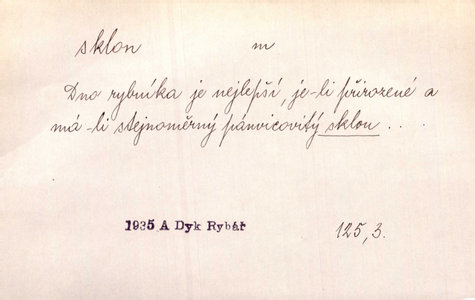 sklon m
Dno rybníka je nejlepší, je-li přirozené a
má-li stejnoměrný pánvicovitý sklon . . .
1935 A Dyk Rybář 125,3.